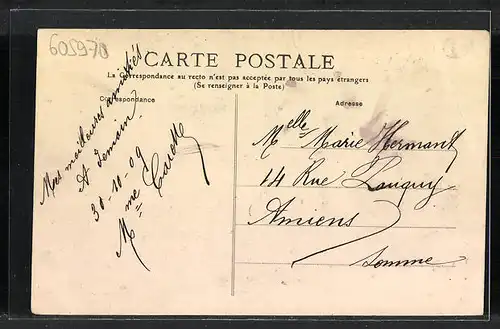 6059-70
CARTE POSTALE
La correspondance au recto n'est pas acceptée par tous les pays étrangers
(Se renseigner à la Poste)
Correspondance
Mes meilleures amitiés
A demain?
30-10-09
Mme Carette
Adresse
Melle Marie Hermant
14 Rue
Amiens
Somme